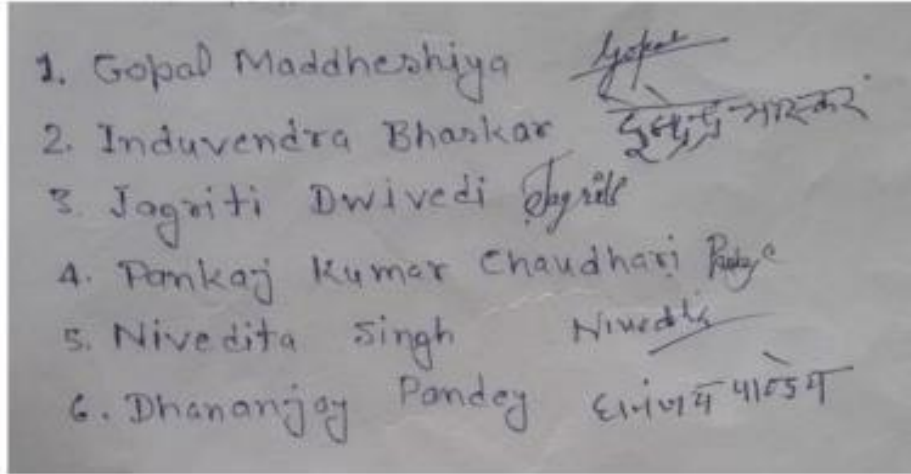 1. Gopal Maddheshiya Gopal
2. Induvendra Bhaskar इन्दुवेन्द्र भास्कर
3. Jagriti Dwivedi Jagriti
4. Pankaj Kumar Chaudhari Pankaj
5. Nivedita Singh Nivedita
6. Dhananjay Pandey धनंजय पाण्डेय